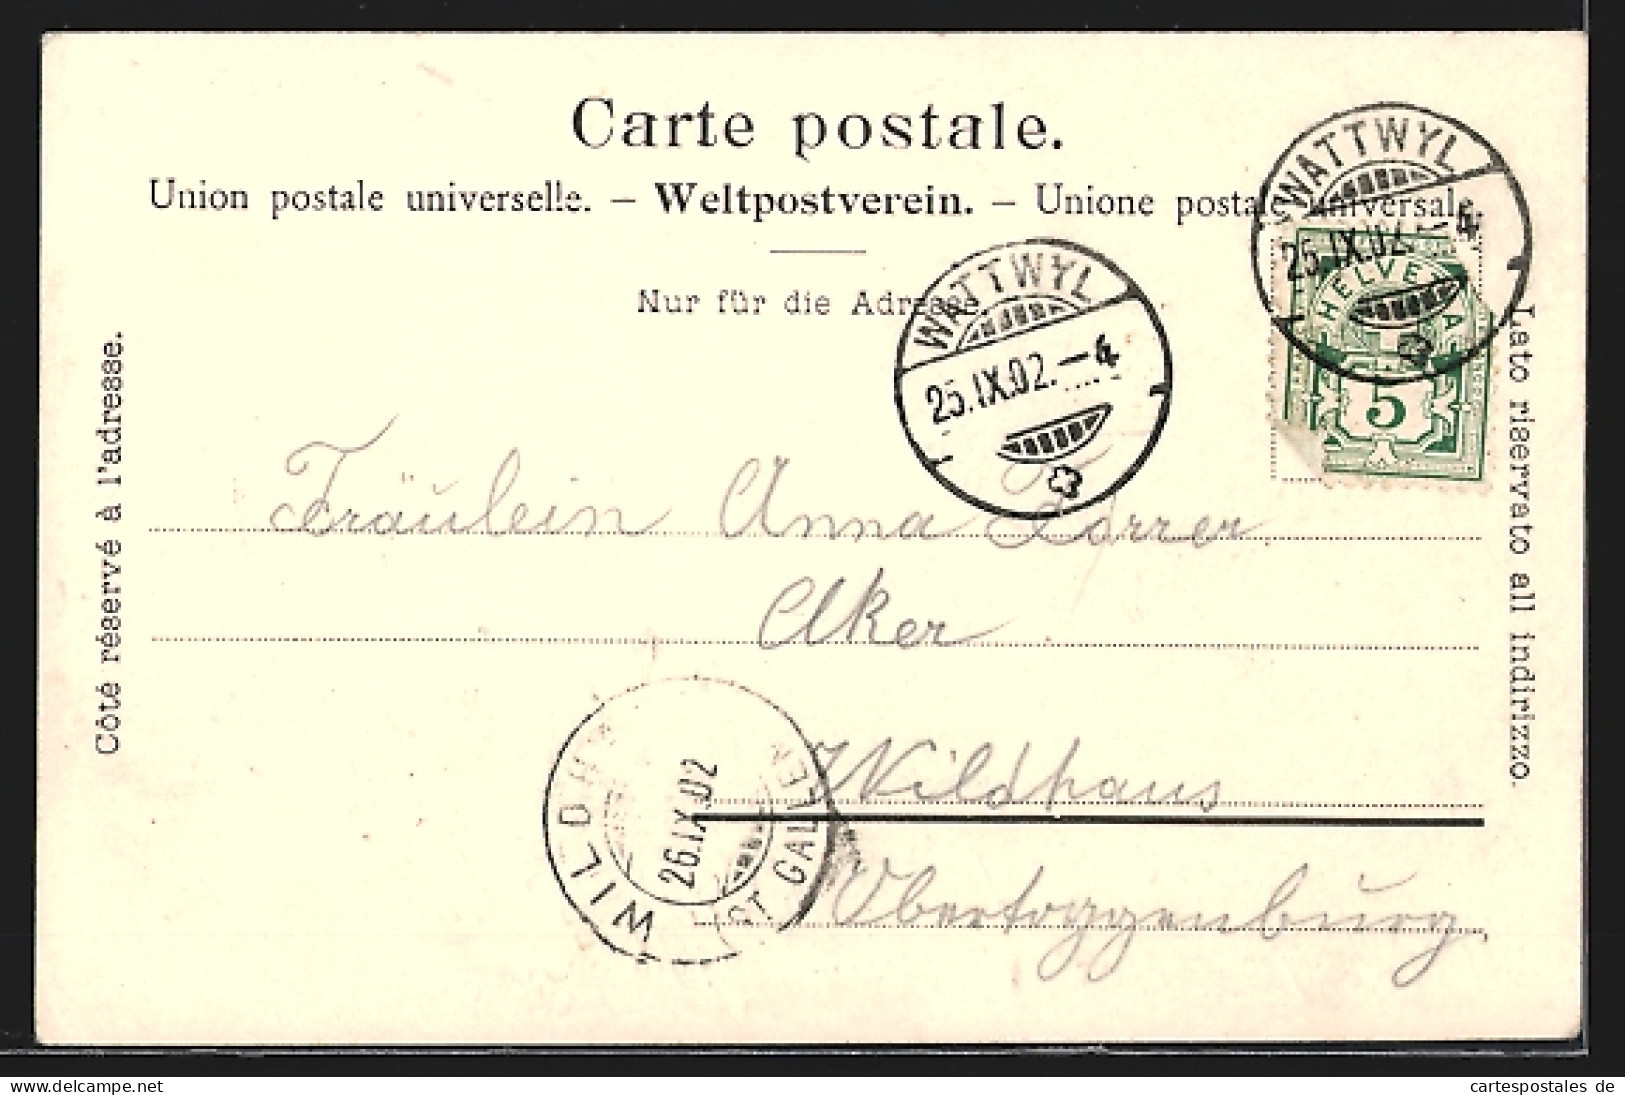 Carte postale.
Union postale universelle. – Weltpostverein. – Unione postale universale.
Nur für die Adresse
WATTWYL
25.IX.02.–4
WATTWYL
25.IX.02.–4
HELVETIA
5
Côté réservé à l'adresse.
Lato riservato all indirizzo.
Fräulein Anna Forrer
Aker
Wildhaus
Obertoggenburg.
WILDH
26.IX.02
ST. GALLEN
delcampe.net
cartespostales de